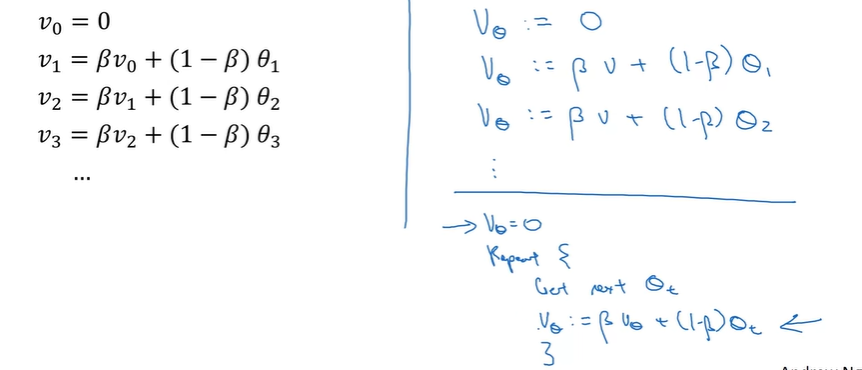 v₀ = 0
v₁ = βv₀ + (1 − β) θ₁
v₂ = βv₁ + (1 − β) θ₂
v₃ = βv₂ + (1 − β) θ₃
...
V_θ := 0
V_θ := β v + (1-β) θ₁
V_θ := β v + (1-β) θ₂
⋮
→ V_θ = 0
Repeat {
Get next θ_t
V_θ := β V_θ + (1-β) θ_t ←
}